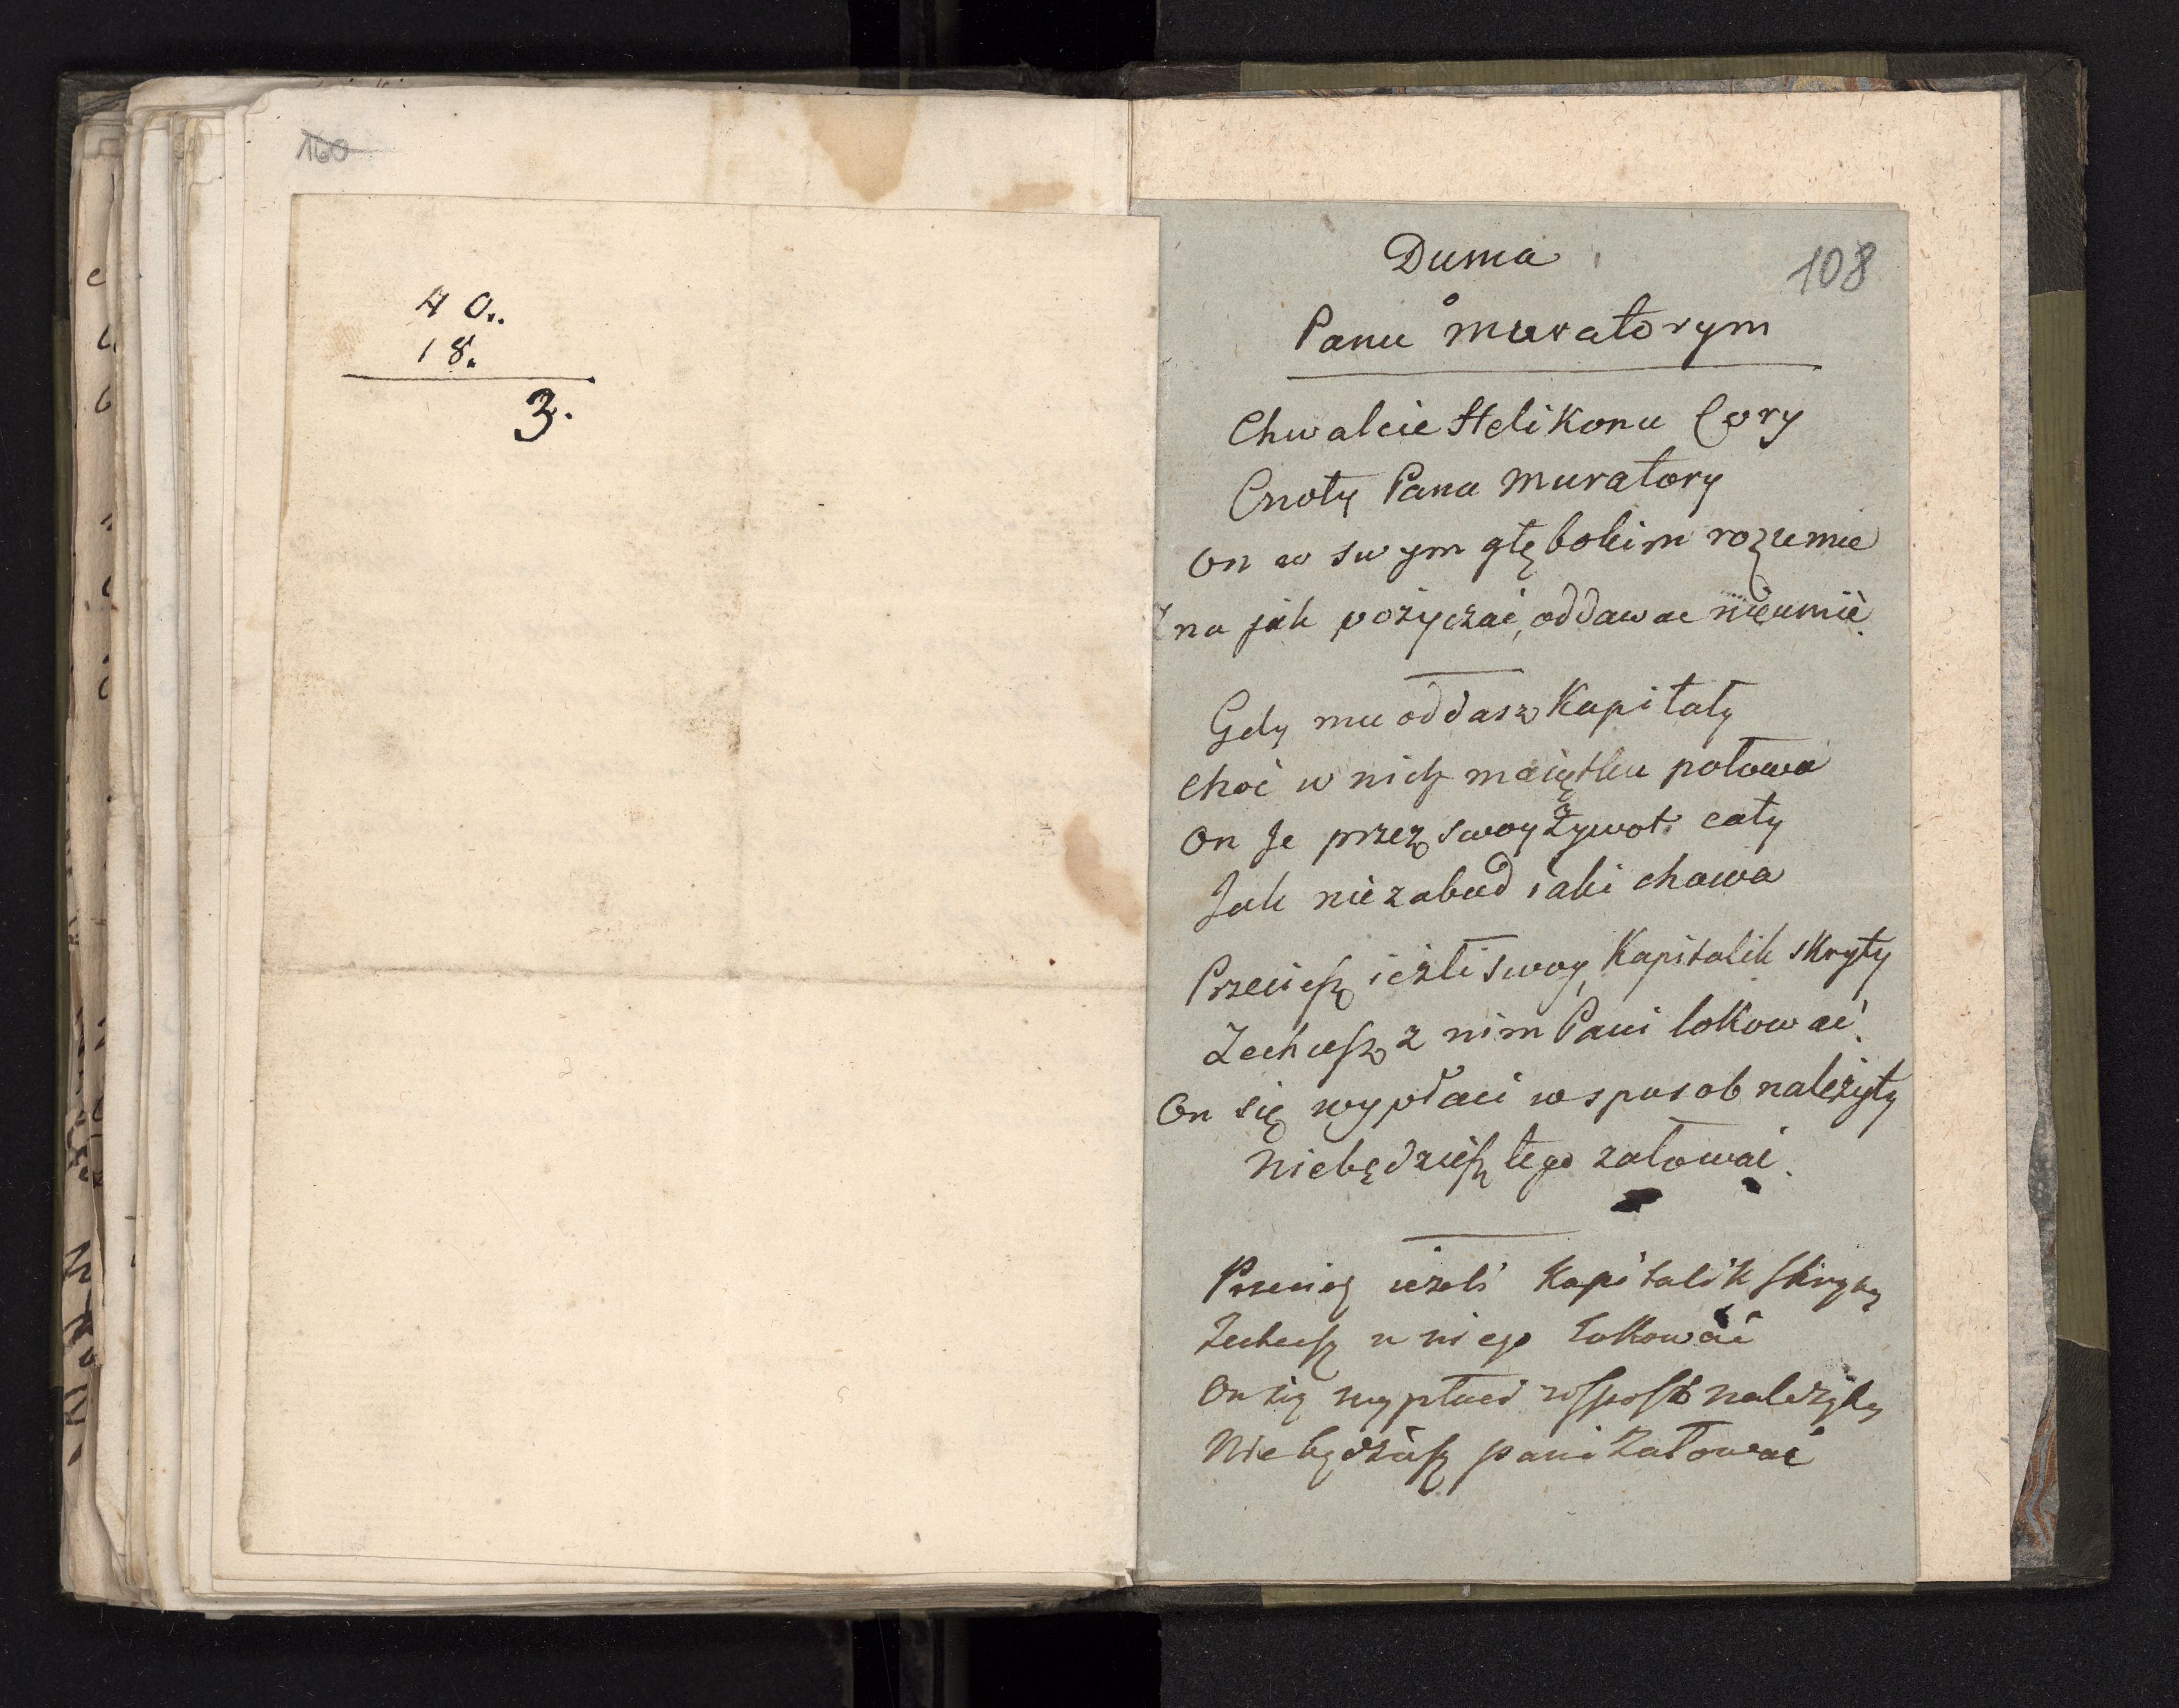 160
40..
18.
3.
108
Duma
o
Panu Muratorym
Chwalcie Helikonu Cory
Cnoty Pana Muratory
On w swym głębokim rozumie
Zna jak pożyczać, oddawac nieumie.
Gdy mu oddasz Kapitały
choć w nich maiątku połowa
On Je przez swoy Żywot cały
Jak niezabudsaki chowa
Przeciesz ieżli swoy Kapitalik skryty
Zechcesz z nim Pani lokować.
On się wypłaci wsposob należyty
Niebędziesz tego załować.
Przecież ieżeli Kapitalik skryty
Zechcesz u niego lokować
On się wypłaci wsposob należyty
Nie będziesz pani Załować